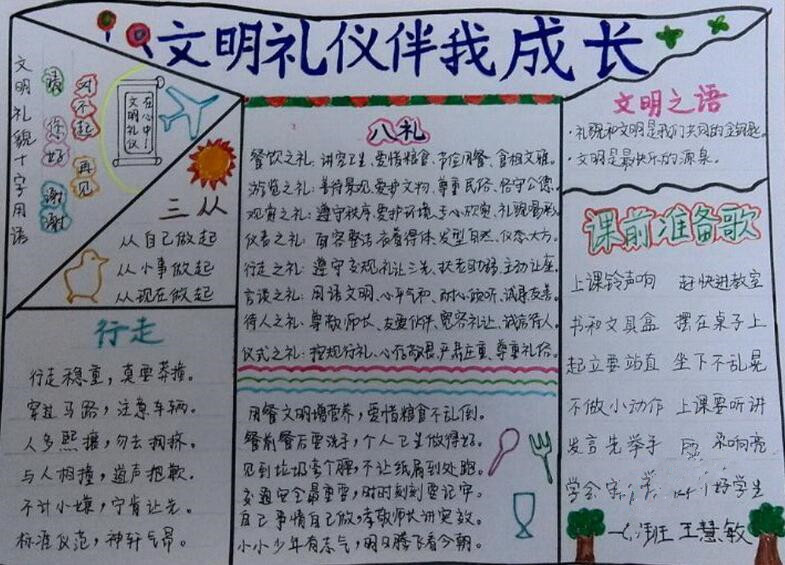 文明礼仪伴我成长
文明礼貌十字用语
请
你好
谢谢
对不起
再见
在心中!
文明礼仪
三从
从自己做起
从小事做起
从现在做起
行走
行走稳重,莫要莽撞。
穿过马路,注意车辆。
人多熙攘,勿去拥挤。
与人相撞,道声抱歉。
不计小嫌,宁肯让先。
标准仪范,神轩气昂。
八礼
餐饮之礼:讲究卫生、爱惜粮食、节俭用餐、食相文雅。
游览之礼:善待景观、爱护文物、尊重民俗、恪守公德。
观赏之礼:遵守秩序、爱护环境、专心欣赏、礼貌喝彩。
仪表之礼:面容整洁、衣着得体、发型自然、仪态大方。
行走之礼:遵守交规、礼让三先、扶老助弱、主动让座。
言谈之礼:用语文明、心平气和、耐心倾听、诚恳友善。
待人之礼:尊敬师长、友爱伙伴、宽容礼让、诚信待人。
仪式之礼:按规行礼、心存敬畏、严肃庄重、尊重礼俗。
用餐文明增营养,爱惜粮食不乱倒。
餐前餐后要洗手,个人卫生做得好。
见到垃圾弯个腰,不让纸屑到处跑。
交通安全最重要,时时刻刻要记牢。
自己事情自己做,孝敬师长讲实效。
小小少年有志气,明日腾飞看今朝。
文明之语
·礼貌和文明是我们共同的金钥匙。
·文明是最快乐的源泉。
课前准备歌
上课铃声响 赶快进教室
书和文具盒 摆在桌子上
起立要站直 坐下不乱晃
不做小动作 上课要听讲
发言先举手 响亮
学会 好学生
王慧敏